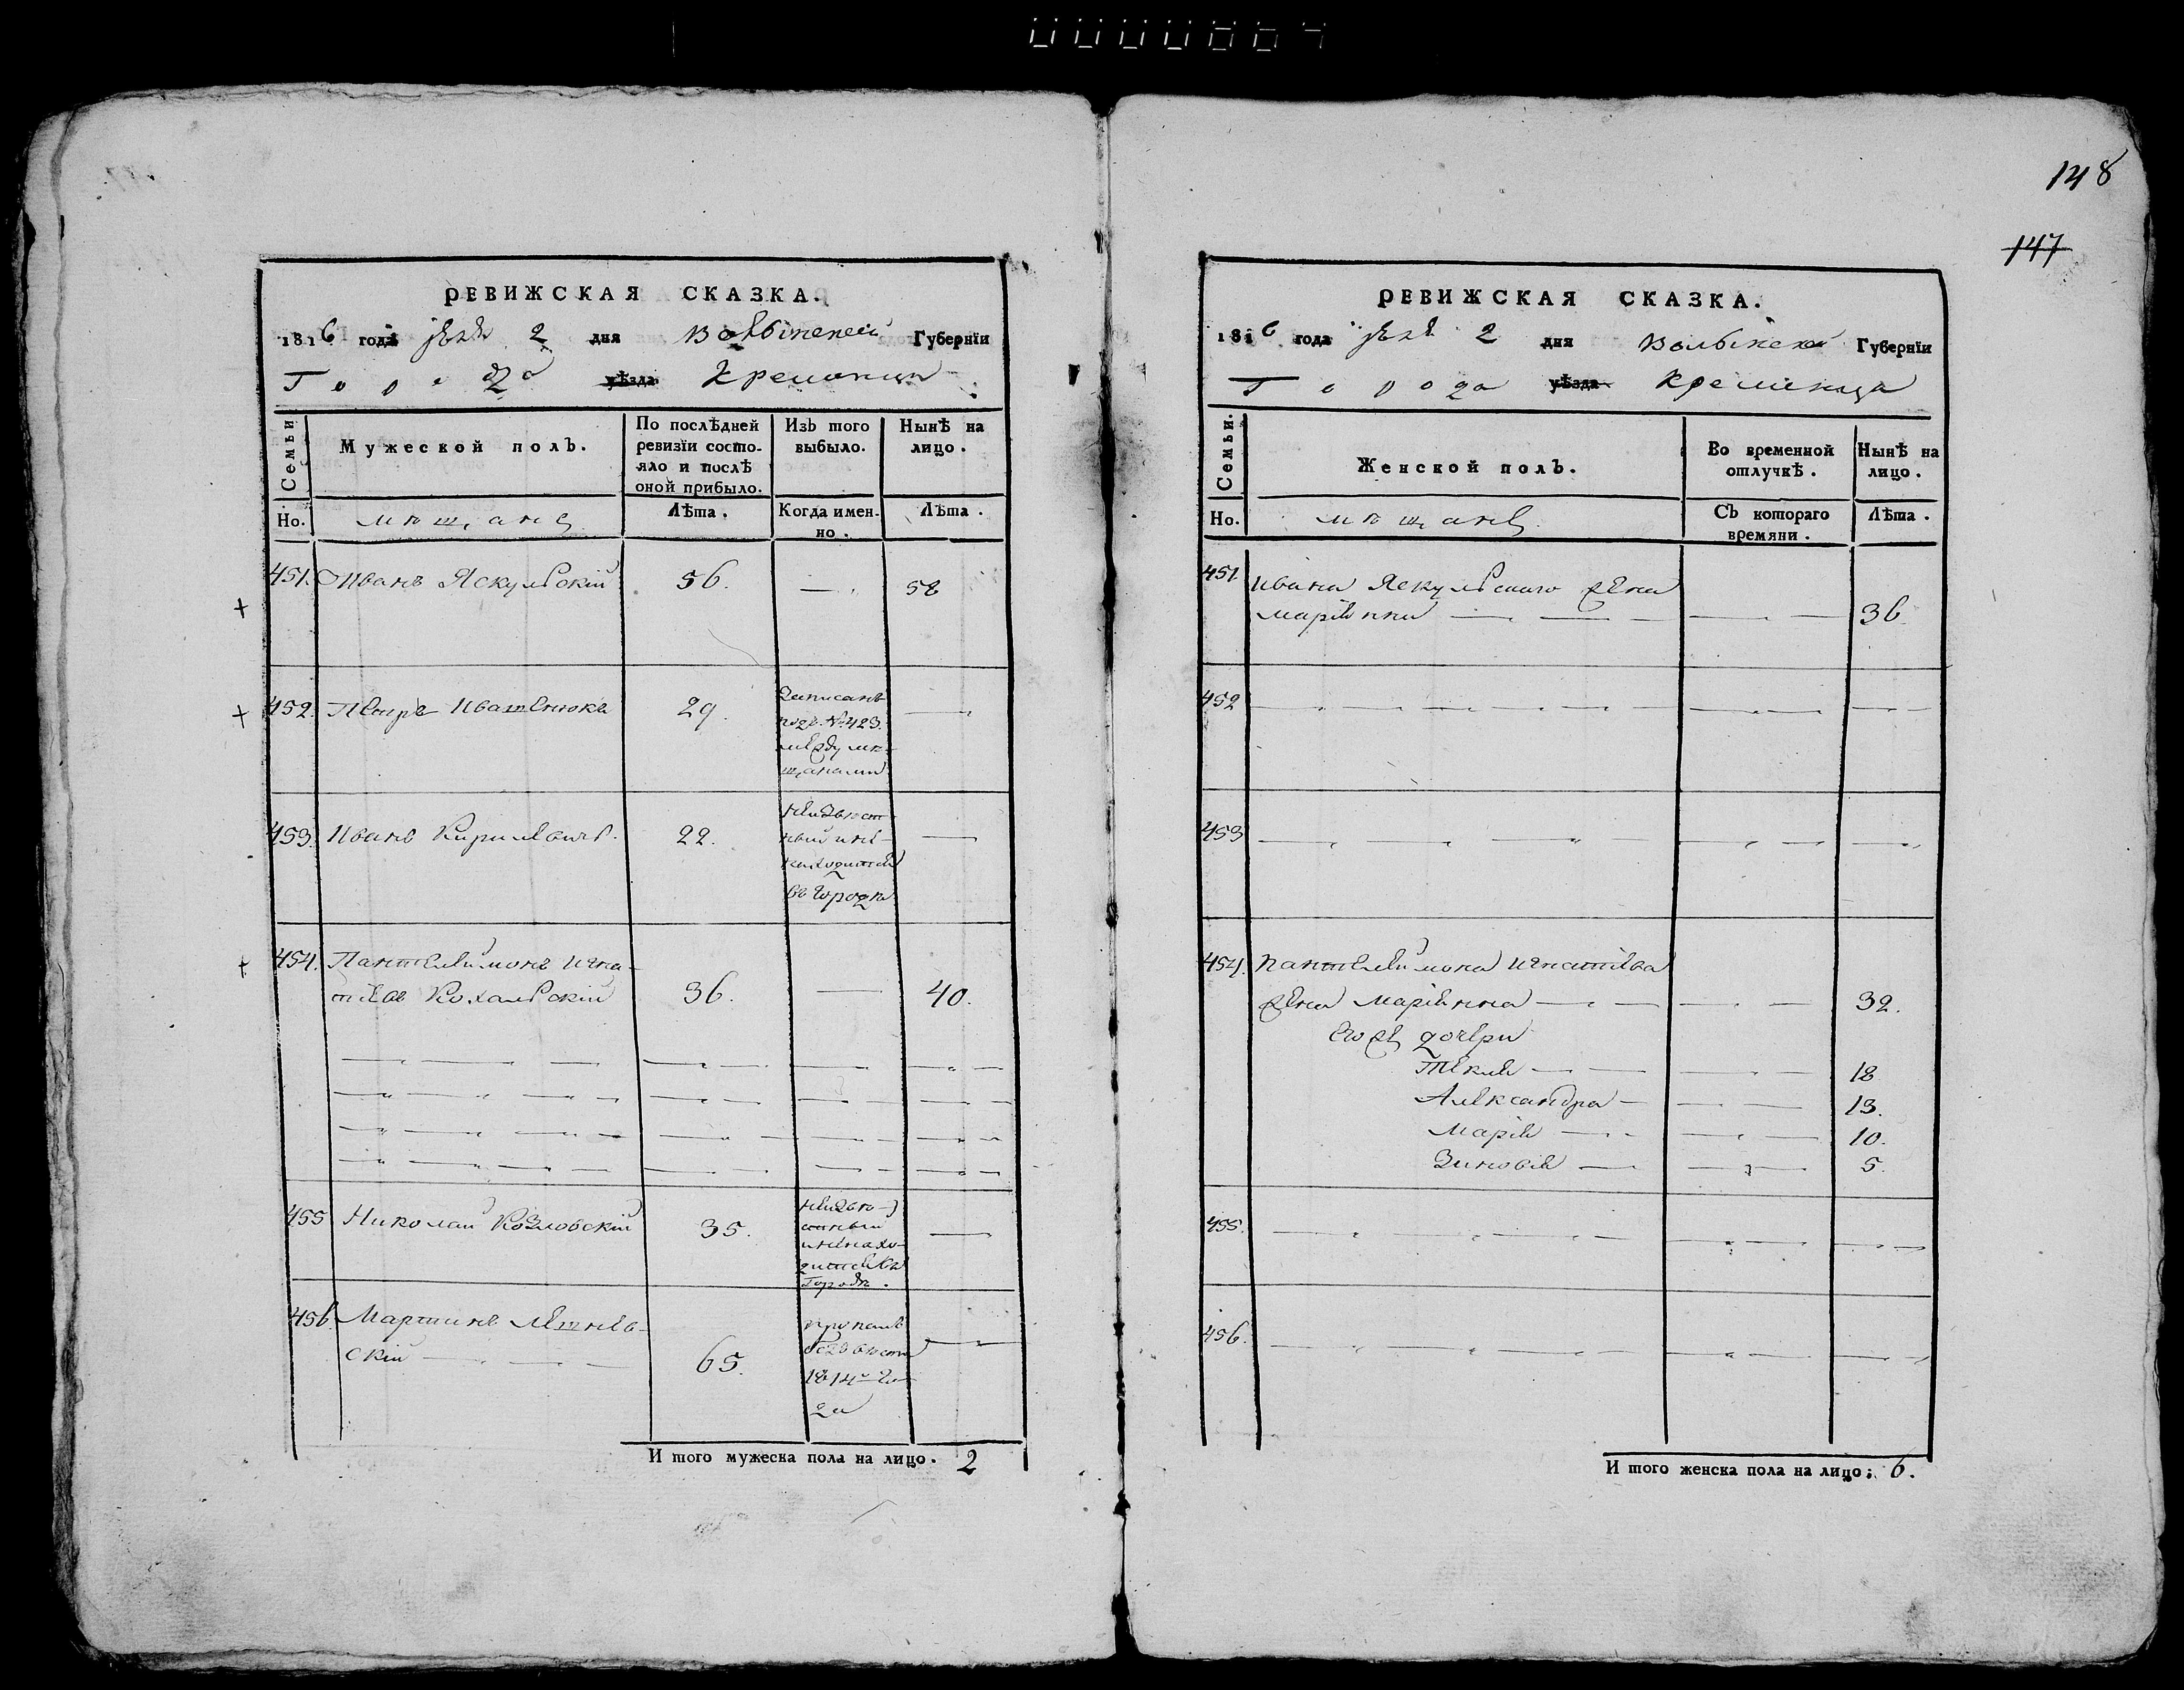 148
147
РЕВИЖСКАЯ СКАЗКА.
1816 года 2 дня Волынской Губернїи
Города уѣзда Кременца
Семьи
Мужеской полъ.
По послѣдней ревизїи состо-
яло и послѣ
оной прибыло.
Изъ того
выбыло.
Нынѣ на
лицо.
Но.
мѣщане
Лѣта.
Когда имен-
но.
Лѣта.
451. Иванъ Яскульскій 56. — 58
452. Петръ Ивашенюкъ 29. — 
Записанъ
подъ №423.
между мѣ-
щанами
453. Иванъ Кирилевичъ. 22. —
неизвѣст-
ный и не
находится
въ городѣ
454. Пантелеймонъ Игна-
тіевъ Кохальскій 36. — 40.
455 Николай Козловскій 35. —
неизвѣ-
стный
и не нахо-
дится въ
городѣ.
456. Мартинъ Лешнев-
скій 65. —
пропалъ
безъ вѣсти
1814го го-
да
И того мужеска пола на лицо. 2
РЕВИЖСКАЯ СКАЗКА.
1816 года 2 дня Волынской Губернїи
Города уѣзда Кременца
Семьи.
Женской полъ.
Во временной
отлучкѣ.
Нынѣ на
лицо.
Но.
мѣщане
Съ котораго
времяни.
Лѣта.
451 Ивана Яскульскаго жена
Маріянна — — 36.
452
453
454. Пантелеймона Игнатіева
жена Маріянна — — 32.
его же дочери
Текля — — 18
Александра — — 13.
Марія — — 10.
Зиновія — — 5.
455.
456.
И того женска пола на лицо; 6.